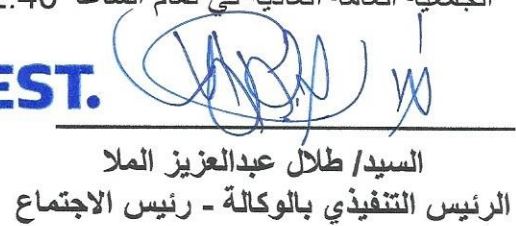 الجمعية العامة العادية في تمام الساعة
EST.
السيد/ طلال عبدالعزيز الملا
الرئيس التنفيذي بالوكالة - رئيس الاجتماع